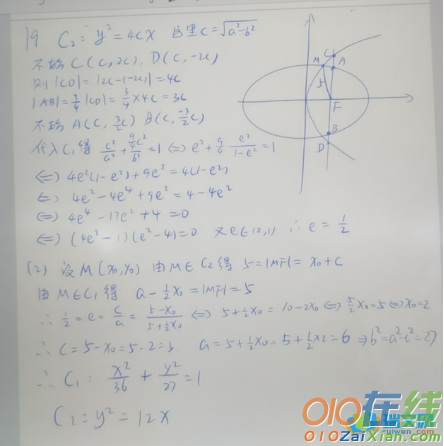 19. C₂: y²=4cx 这里c=√(a²-b²)
不妨 C(c, 2c), D(c, -2c)
则 |CD|=|2c-(-2c)|=4c
|AB|=3/4|CD|=3/4×4c=3c
不妨 A(c, 3/2c) B(c, -3/2c)
代入C₁得 c²/a²+(9/4c²)/b²=1 ⇔ e²+9/4·e²/(1-e²)=1
⇔ 4e²(1-e²)+9e²=4(1-e²)
⇔ 4e²-4e⁴+9e²=4-4e²
⇔ 4e⁴-17e²+4=0
⇔ (4e²-1)(e²-4)=0 又e∈(0,1) ∴e=1/2
(2) 设M(x₀,y₀) 由M∈C₂得 5=|MF|=x₀+c
由M∈C₁得 a-1/2x₀=|MF|=5
∴ 1/2=e=c/a=(5-x₀)/(5+1/2x₀) ⇔ 5+1/2x₀=10-2x₀ ⇔ 5/2x₀=5 ⇔ x₀=2
∴ c=5-x₀=5-2=3 a=5+1/2x₀=5+1/2×2=6 ⇒ b²=a²-c²=27
∴ C₁: x²/36+y²/27=1
C₂: y²=12x
M C A
5
F
B
D
010在线
010ZaiXian.com